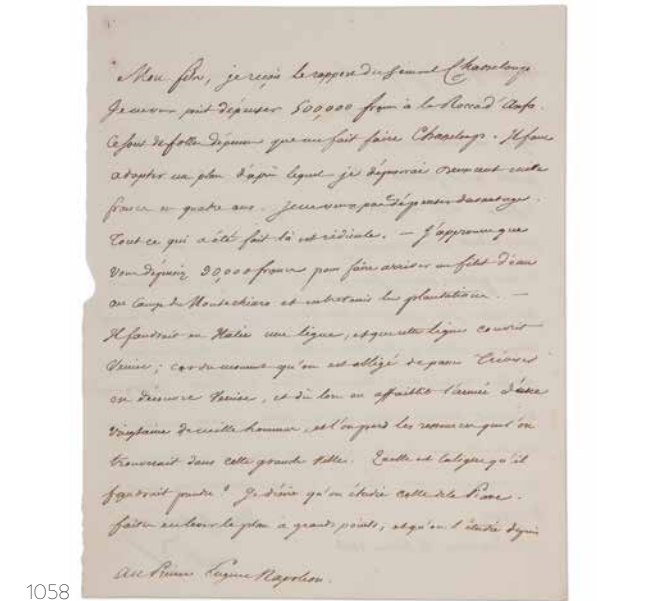 Mon fils, je reçois le rapport du Général Chasseloup
Je ne veux point dépenser 500,000 francs à la Rocca d'Anfo.
Ce sont de folles dépenses que me fait faire Chasseloup. Il faut
adopter un plan d'après lequel je dépenserai cent mille
francs en quatre ans. Je ne veux pas dépenser davantage.
Tout ce qui a été fait là est ridicule. — J'approuve que
vous dépensiez 30,000 francs pour faire arriver un filet d'eau
au Camp de Montechiaro et entretenir les plantations. —
Il faudrait en Italie une ligne, et que cette ligne couvrît
Venise; car du moment qu'on est obligé de passer Trévise
on découvre Venise, et dès lors on affaiblit l'armée d'une
vingtaine de mille hommes, et l'on perd les ressources que l'on
trouverait dans cette grande Ville. Quelle est la ligne qu'il
faudrait prendre? Je désire qu'on étudie celle de la Piave.
faites en lever le plan à grands points, et qu'on l'étudie depuis
Au Prince Eugène Napoléon.
1058